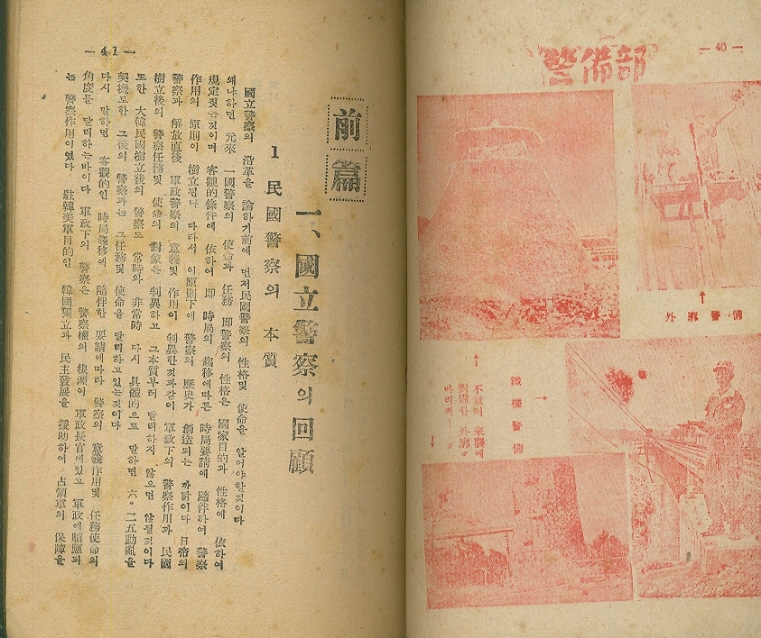 — 40 —
警備部
↑
外廓警備
鐵橋警備
→
↑
來襲에
對備한 外廓
↓
— 41 —
前篇
一、國立警察의 回顧
1 民國警察의 本質
國立警察의 沿革을 論하기前에 먼저民國警察의 性格및 使命을 알어야할것이다
왜냐하면 元來 一國警察의 使命과 任務 即警察의 性格은 國家目的과 性格에 依하여
規定짓는것이며 客觀的條件에 依하여 即 時局의 趨移에따른 時局要請에 隨伴하여 警察
作用의 原則이 樹立된다 따라서 이原則下에 警察의 歷史가 創造되는 까닭이다 日帝의
警察과 解放直後 軍政警察의 意義및 作用이 判異한것과같이 軍政下의 警察作用과 民國
樹立後의 警察任務및 使命의 對象은 判異하고 그本質부터 달리하지 않으면 않될것이다
또한 大韓民國樹立後의 警察도 常時와 非常時 다시 具體的으로 말하면 六•二五動亂을
契機로한 그後의 警察과는 그任務및 使命을 달리하고있는것이다
다시 말하면 客觀的인 時局趨移에 隨伴한 要請에따라 警察의 意義作用및 任務使命의
角度를 달리하는바이다 軍政下의 警察은 警察權의 根源이 軍政長官에있고 軍政에順應되
는 警察作用이였다 駐韓美軍目的인 韓國獨立과 民主發展을 援助하여 占領軍의 保障을